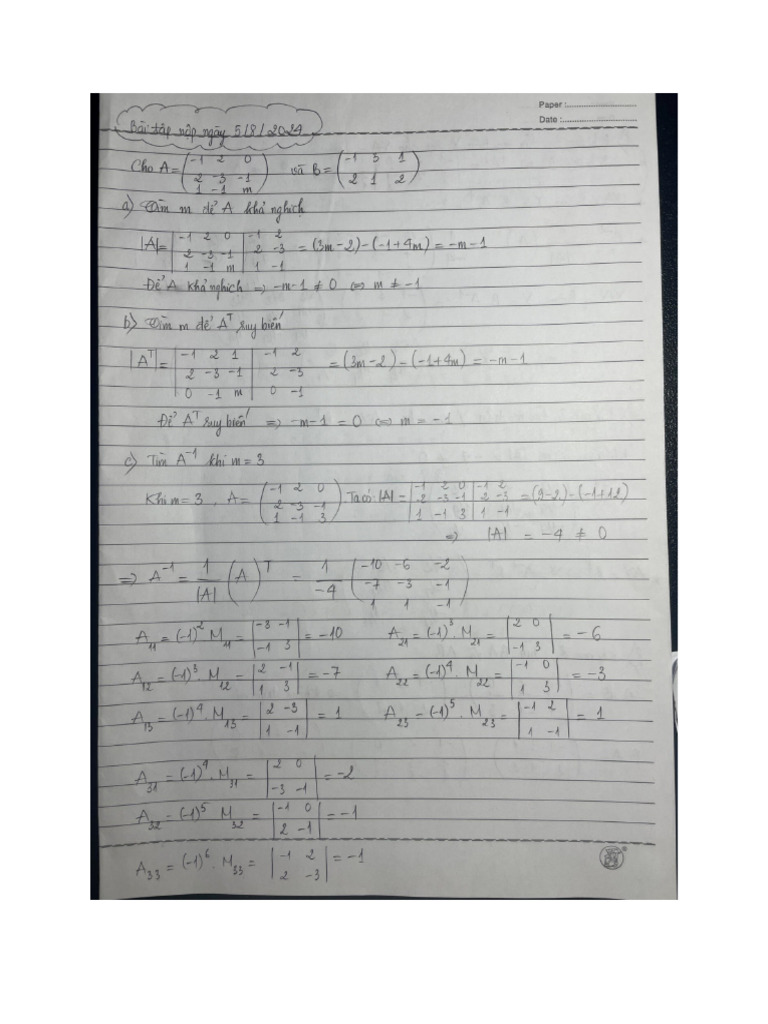 Paper :
Date :
Bài tập nộp ngày 5/8/2024
Cho A = (-1 2 0; 2 -3 -1; 1 -1 m) và B = (-1 3 1; 2 1 2)
a) Tìm m để A khả nghịch
|A| = |-1 2 0; 2 -3 -1; 1 -1 m| -1 2; 2 -3; 1 -1 = (3m-2)-(-1+4m) = -m-1
Để A khả nghịch => -m-1 ≠ 0 <=> m ≠ -1
b) Tìm m để A^T suy biến
|A^T| = |-1 2 1; 2 -3 -1; 0 -1 m| -1 2; 2 -3; 0 -1 = (3m-2)-(-1+4m) = -m-1
Để A^T suy biến => -m-1 = 0 <=> m = -1
c) Tìm A^-1 khi m = 3
Khi m = 3 , A = (-1 2 0; 2 -3 -1; 1 -1 3) Ta có |A| = |-1 2 0; 2 -3 -1; 1 -1 3| -1 2; 2 -3; 1 -1 = (9-2)-(-1+12)
=> |A| = -4 ≠ 0
=> A^-1 = 1/|A| (A)^T = 1/-4 (-10 -6 -2; -7 -3 -1; 1 1 -1)
A11 = (-1)^2 M11 = |-3 -1; -1 3| = -10 A21 = (-1)^3 . M21 = |2 0; -1 3| = -6
A12 = (-1)^3 . M12 = |2 -1; 1 3| = -7 A22 = (-1)^4 . M22 = |-1 0; 1 3| = -3
A13 = (-1)^4 . M13 = |2 -3; 1 -1| = 1 A23 = (-1)^5 . M23 = |-1 2; 1 -1| = 1
A31 = (-1)^4 . M31 = |2 0; -3 -1| = -2
A32 = (-1)^5 M32 = |-1 0; 2 -1| = -1
A33 = (-1)^6 . M33 = |-1 2; 2 -3| = -1